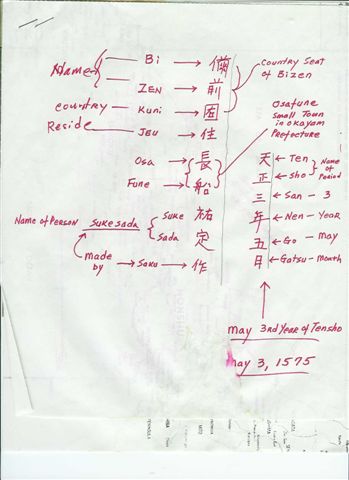 Name
Bi → 備
Country Seat
of Bizen
ZEN → 前
country → Kuni → 国
Reside → JBU → 住
Osafune
Small Town
in okayam
Prefecture
Osa → 長
Fune → 船
天 ← Ten
正 ← Sho
Name
of
Period
三 ← San - 3
年 ← Nen - Year
五 ← Go - May
日 ← Gatsu - Month
Name of Person Sukesada
Suke 祐
Sada 定
made
by → Saku → 作
May 3rd Year of Tensho
May 3, 1575